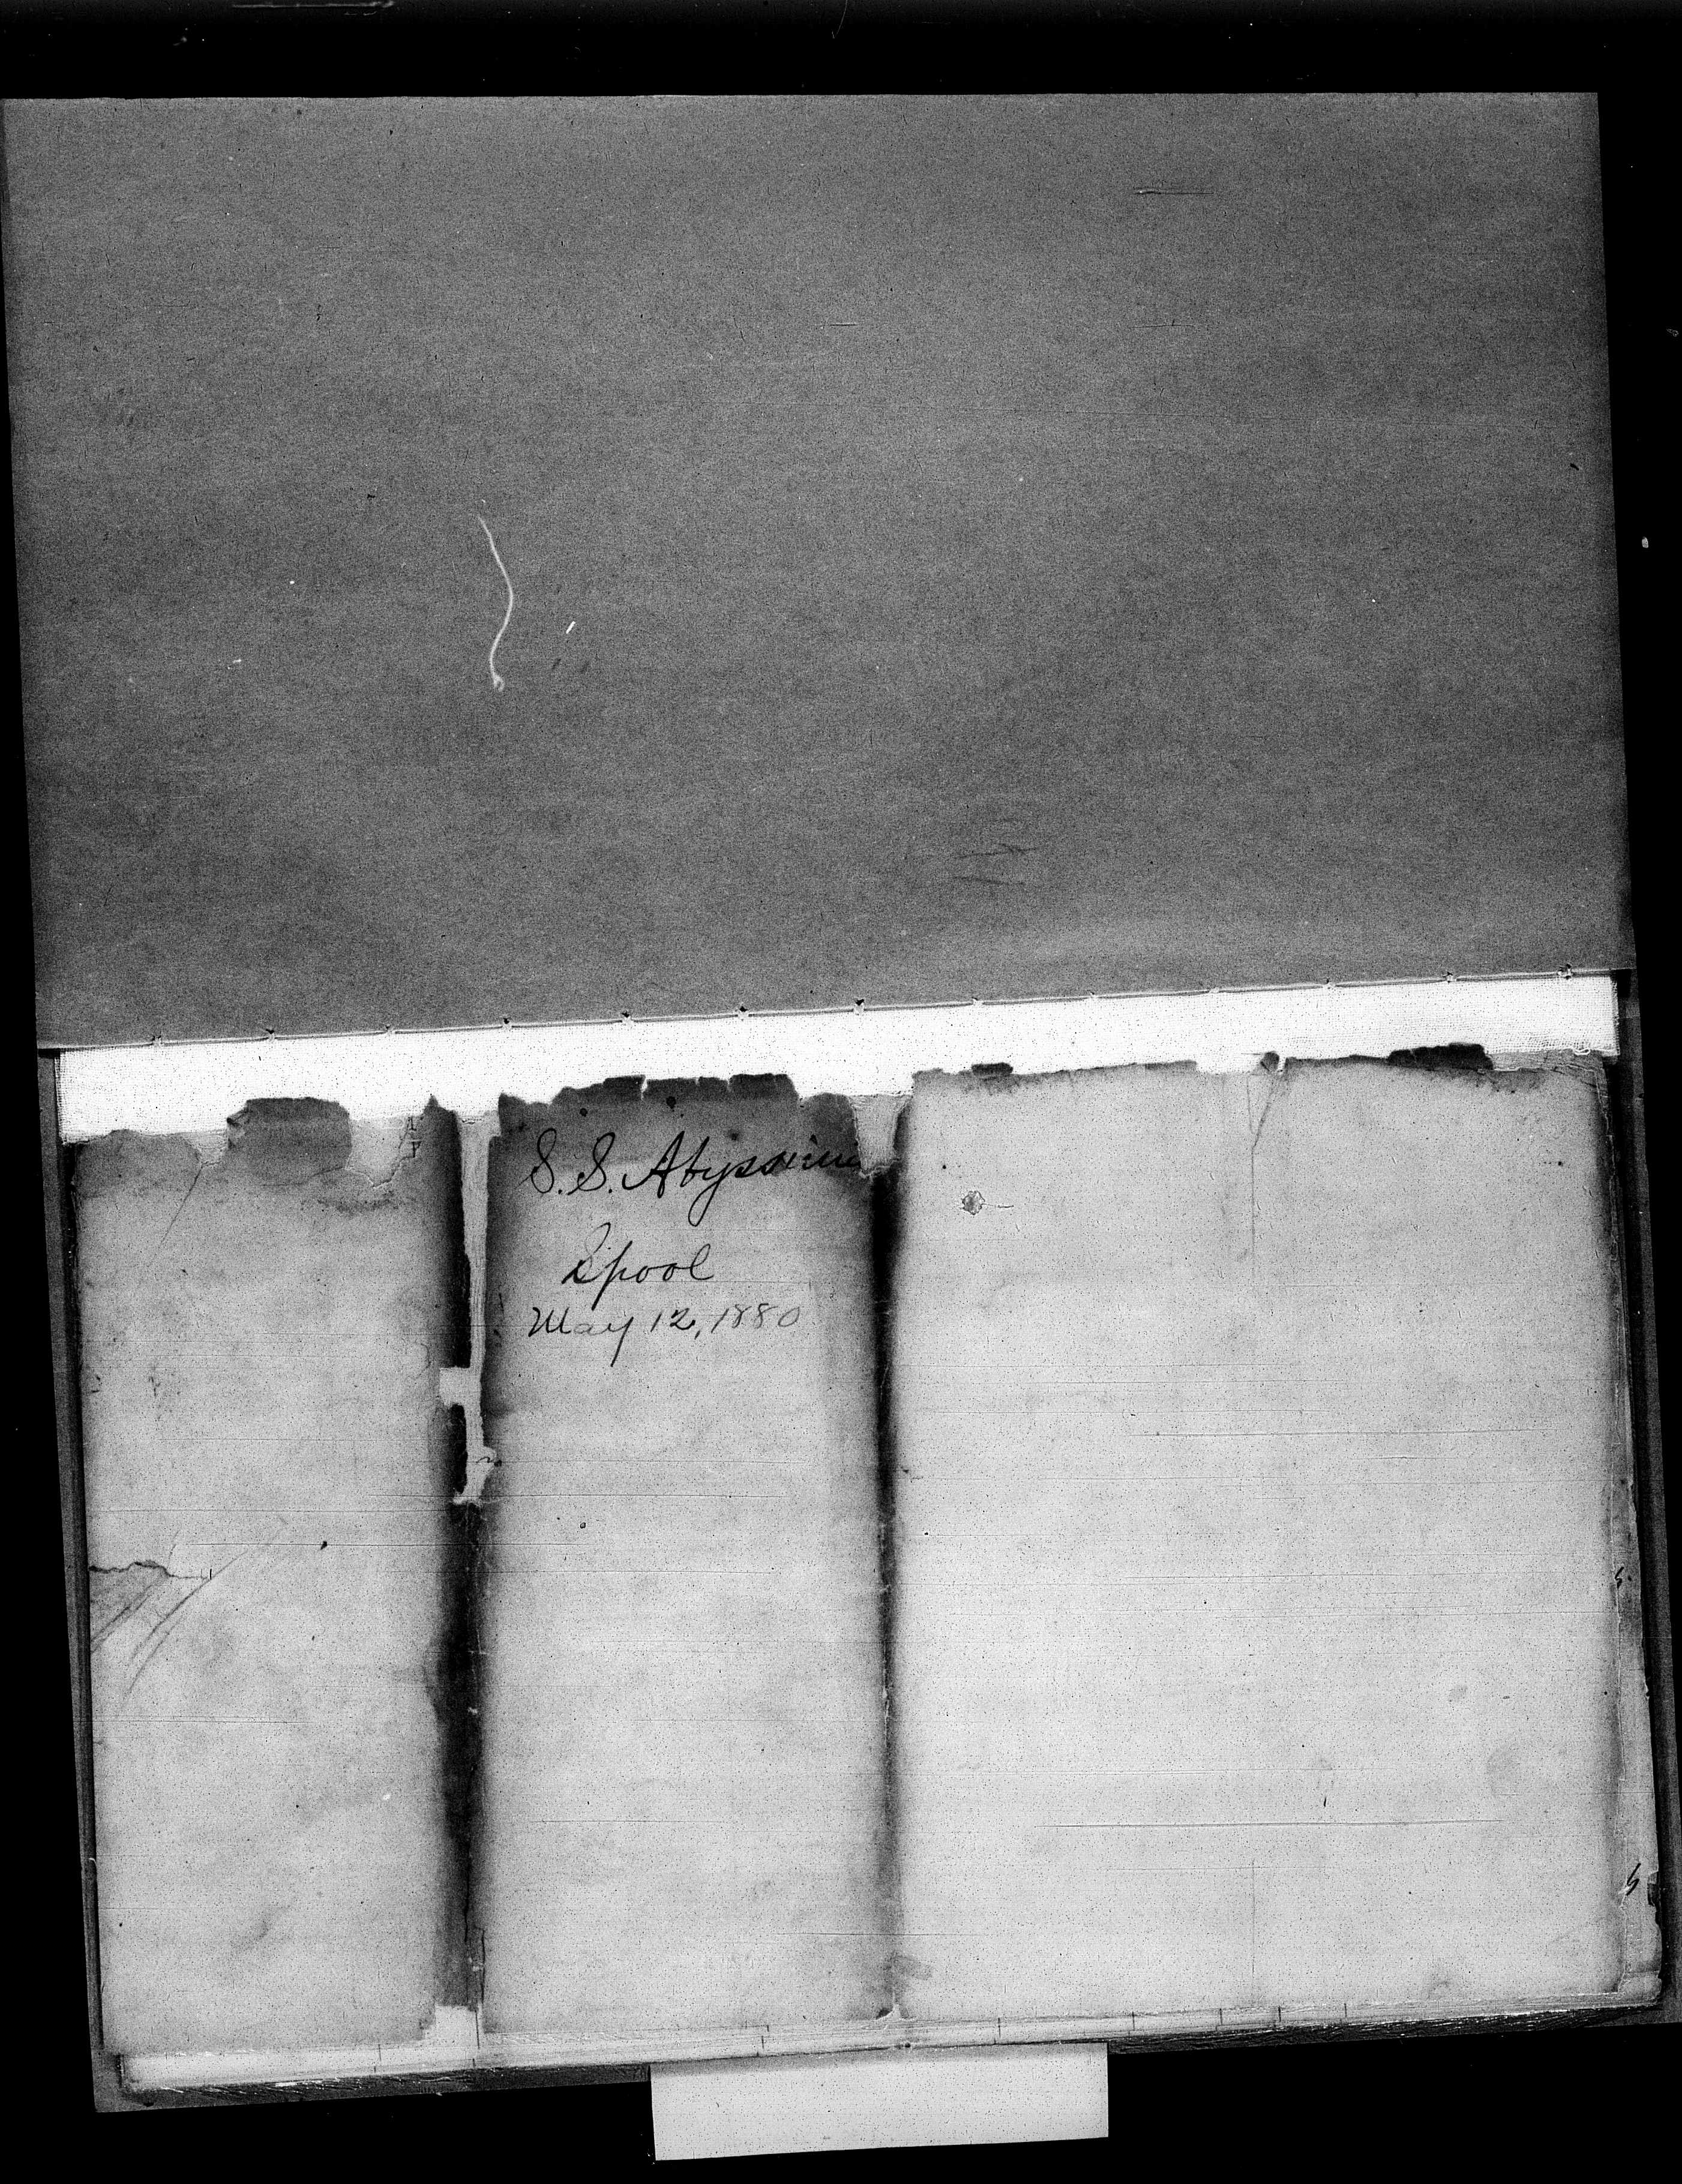 S.S. Abyssinia
Lpool
May 12, 1880